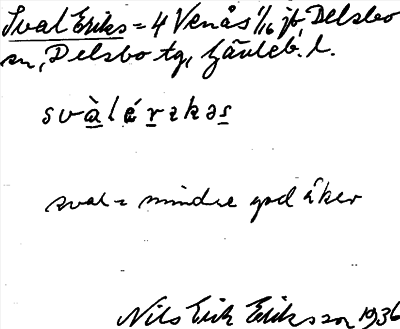 Sval Eriks = 4 Venås 1/16 jb, Delsbo
sn, Delsbo tg, Gävleb. l.
svàlérzkəs
sval = mindre god åker
Nils Erik Eriksson 1936